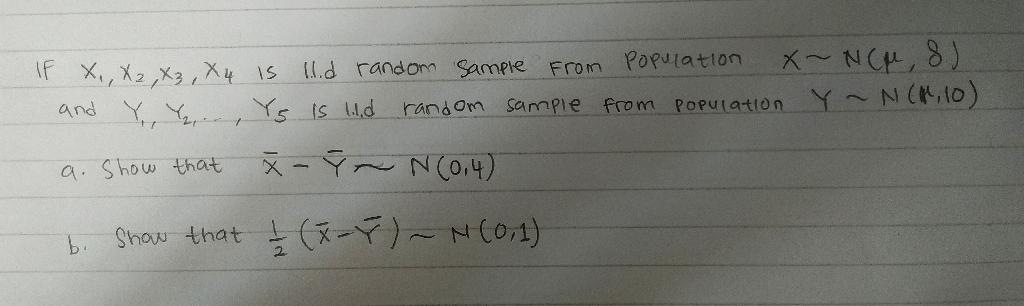 IF X₁, X₂, X₃, X₄ is i.i.d random sample From Population X ~ N(μ, 8)
and Y₁, Y₂, .., Y₅ is i.i.d random sample from population Y ~ N(μ,10)
a. Show that X̄ - Ȳ ~ N(0,4)
b. Show that 1/2 (X̄-Ȳ) ~ N(0,1)